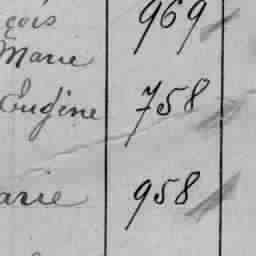 çois 969
Marie
Eugène 758
arie 958